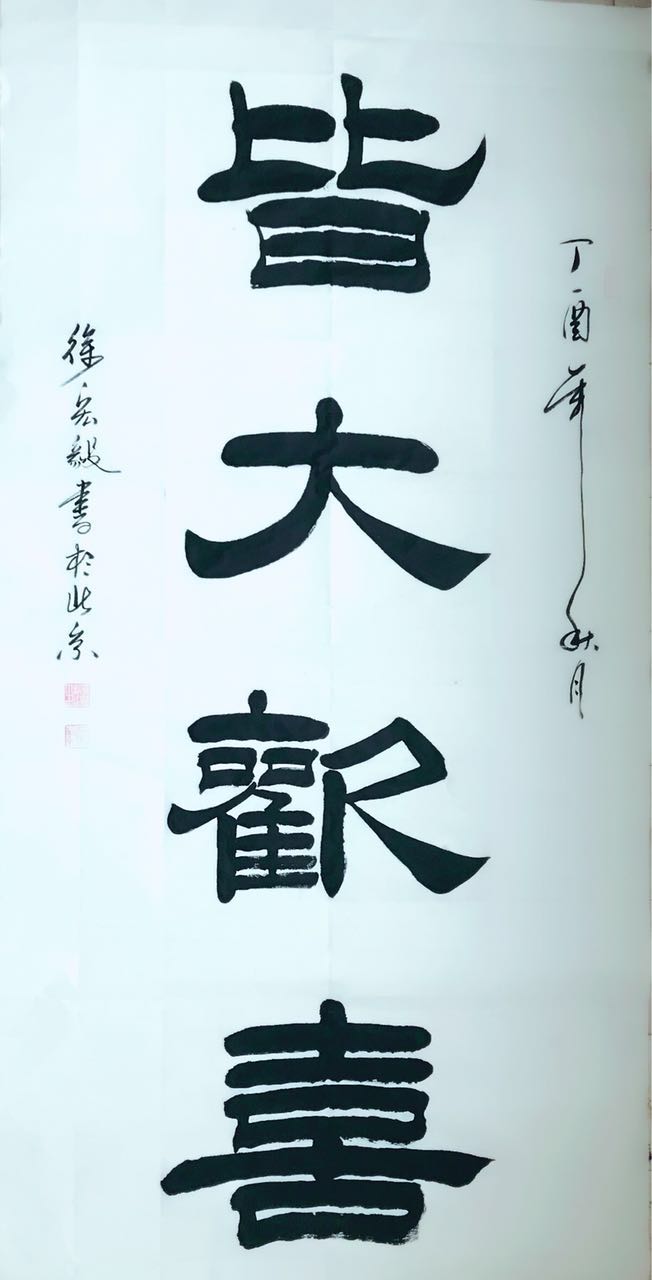 丁酉年秋月
皆大歡喜
徐宏毅書於北京